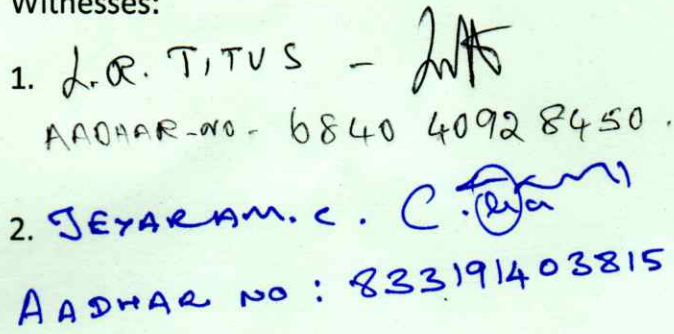 Witnesses:
1. L.R. TITUS -
AADHAR-NO- 6840 4092 8450.
2. JEYARAM.C. C.
AADHAR NO: 833191403815